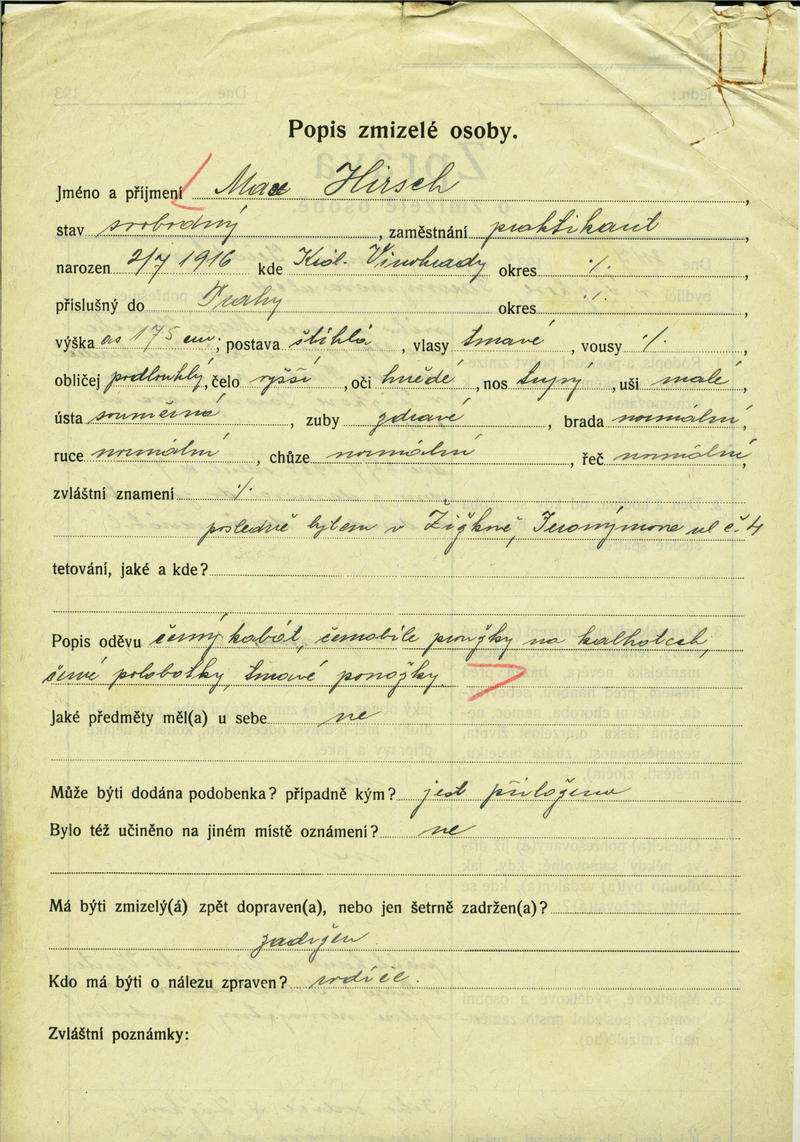 Popis zmizelé osoby.
Jméno a příjmení Max Hirsch,
stav svobodný, zaměstnání praktikant,
narozen 2/7 1916 kde Král. Vinohrady okres ·/·,
příslušný do Prahy okres ·/·,
výška as 175 cm; postava štíhlá, vlasy tmavé, vousy ·/·,
obličej podlouhlý, čelo vyšší, oči hnědé, nos tupý, uši malé,
ústa souměrná, zuby zdravé, brada normální,
ruce normální, chůze normální, řeč normální,
zvláštní znamení ·/·
posledně bytem v Žižkově, Jeronýmova ul č. 4
tetování, jaké a kde?
Popis oděvu černý kabát, černobíle proužky na kalhotech,
černé polobotky, tmavé ponožky.
Jaké předměty měl(a) u sebe ne
Může býti dodána podobenka? případně kým? jest přiložena
Bylo též učiněno na jiném místě oznámení? ne
Má býti zmizelý(á) zpět dopraven(a), nebo jen šetrně zadržen(a)?
zadržen
Kdo má býti o nálezu zpraven? rodiče.
Zvláštní poznámky: